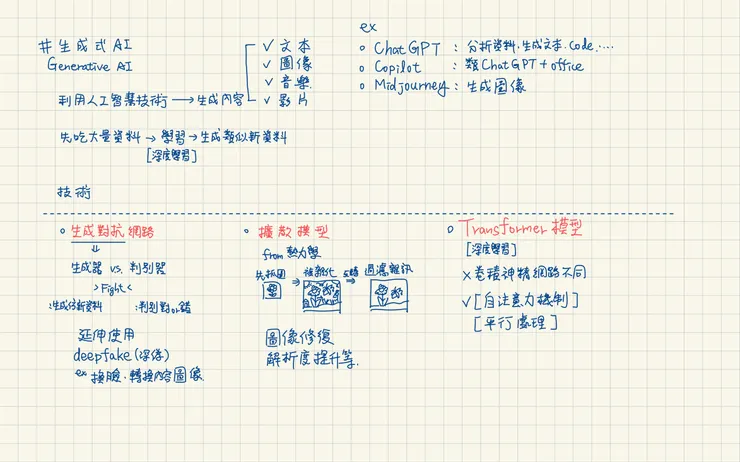 # 生成式AI
Generative AI
利用人工智慧技術 → 生成內容
✓ 文本
✓ 圖像
✓ 音樂
✓ 影片
ex
○ ChatGPT : 分析資料、生成文本、Code、....
○ Copilot : 類ChatGPT + office
○ Midjourney : 生成圖像
先吃大量資料 → 學習 → 生成類似新資料
[深度學習]
技術
○ 生成對抗網路
⇓
生成器 vs. 判別器
>Fight<
:生成 資料 :判別對or錯
延伸使用
deepfake(深偽)
ex 換臉、轉換內容圖像
○ 擴散模型
from 熱力學
⇒ ⇒ 過濾雜訊
圖像修復
解析度提升等.
○ Transformer 模型
[深度學習]
×卷積神經網路不同
✓[自注意力機制]
[平行處理]